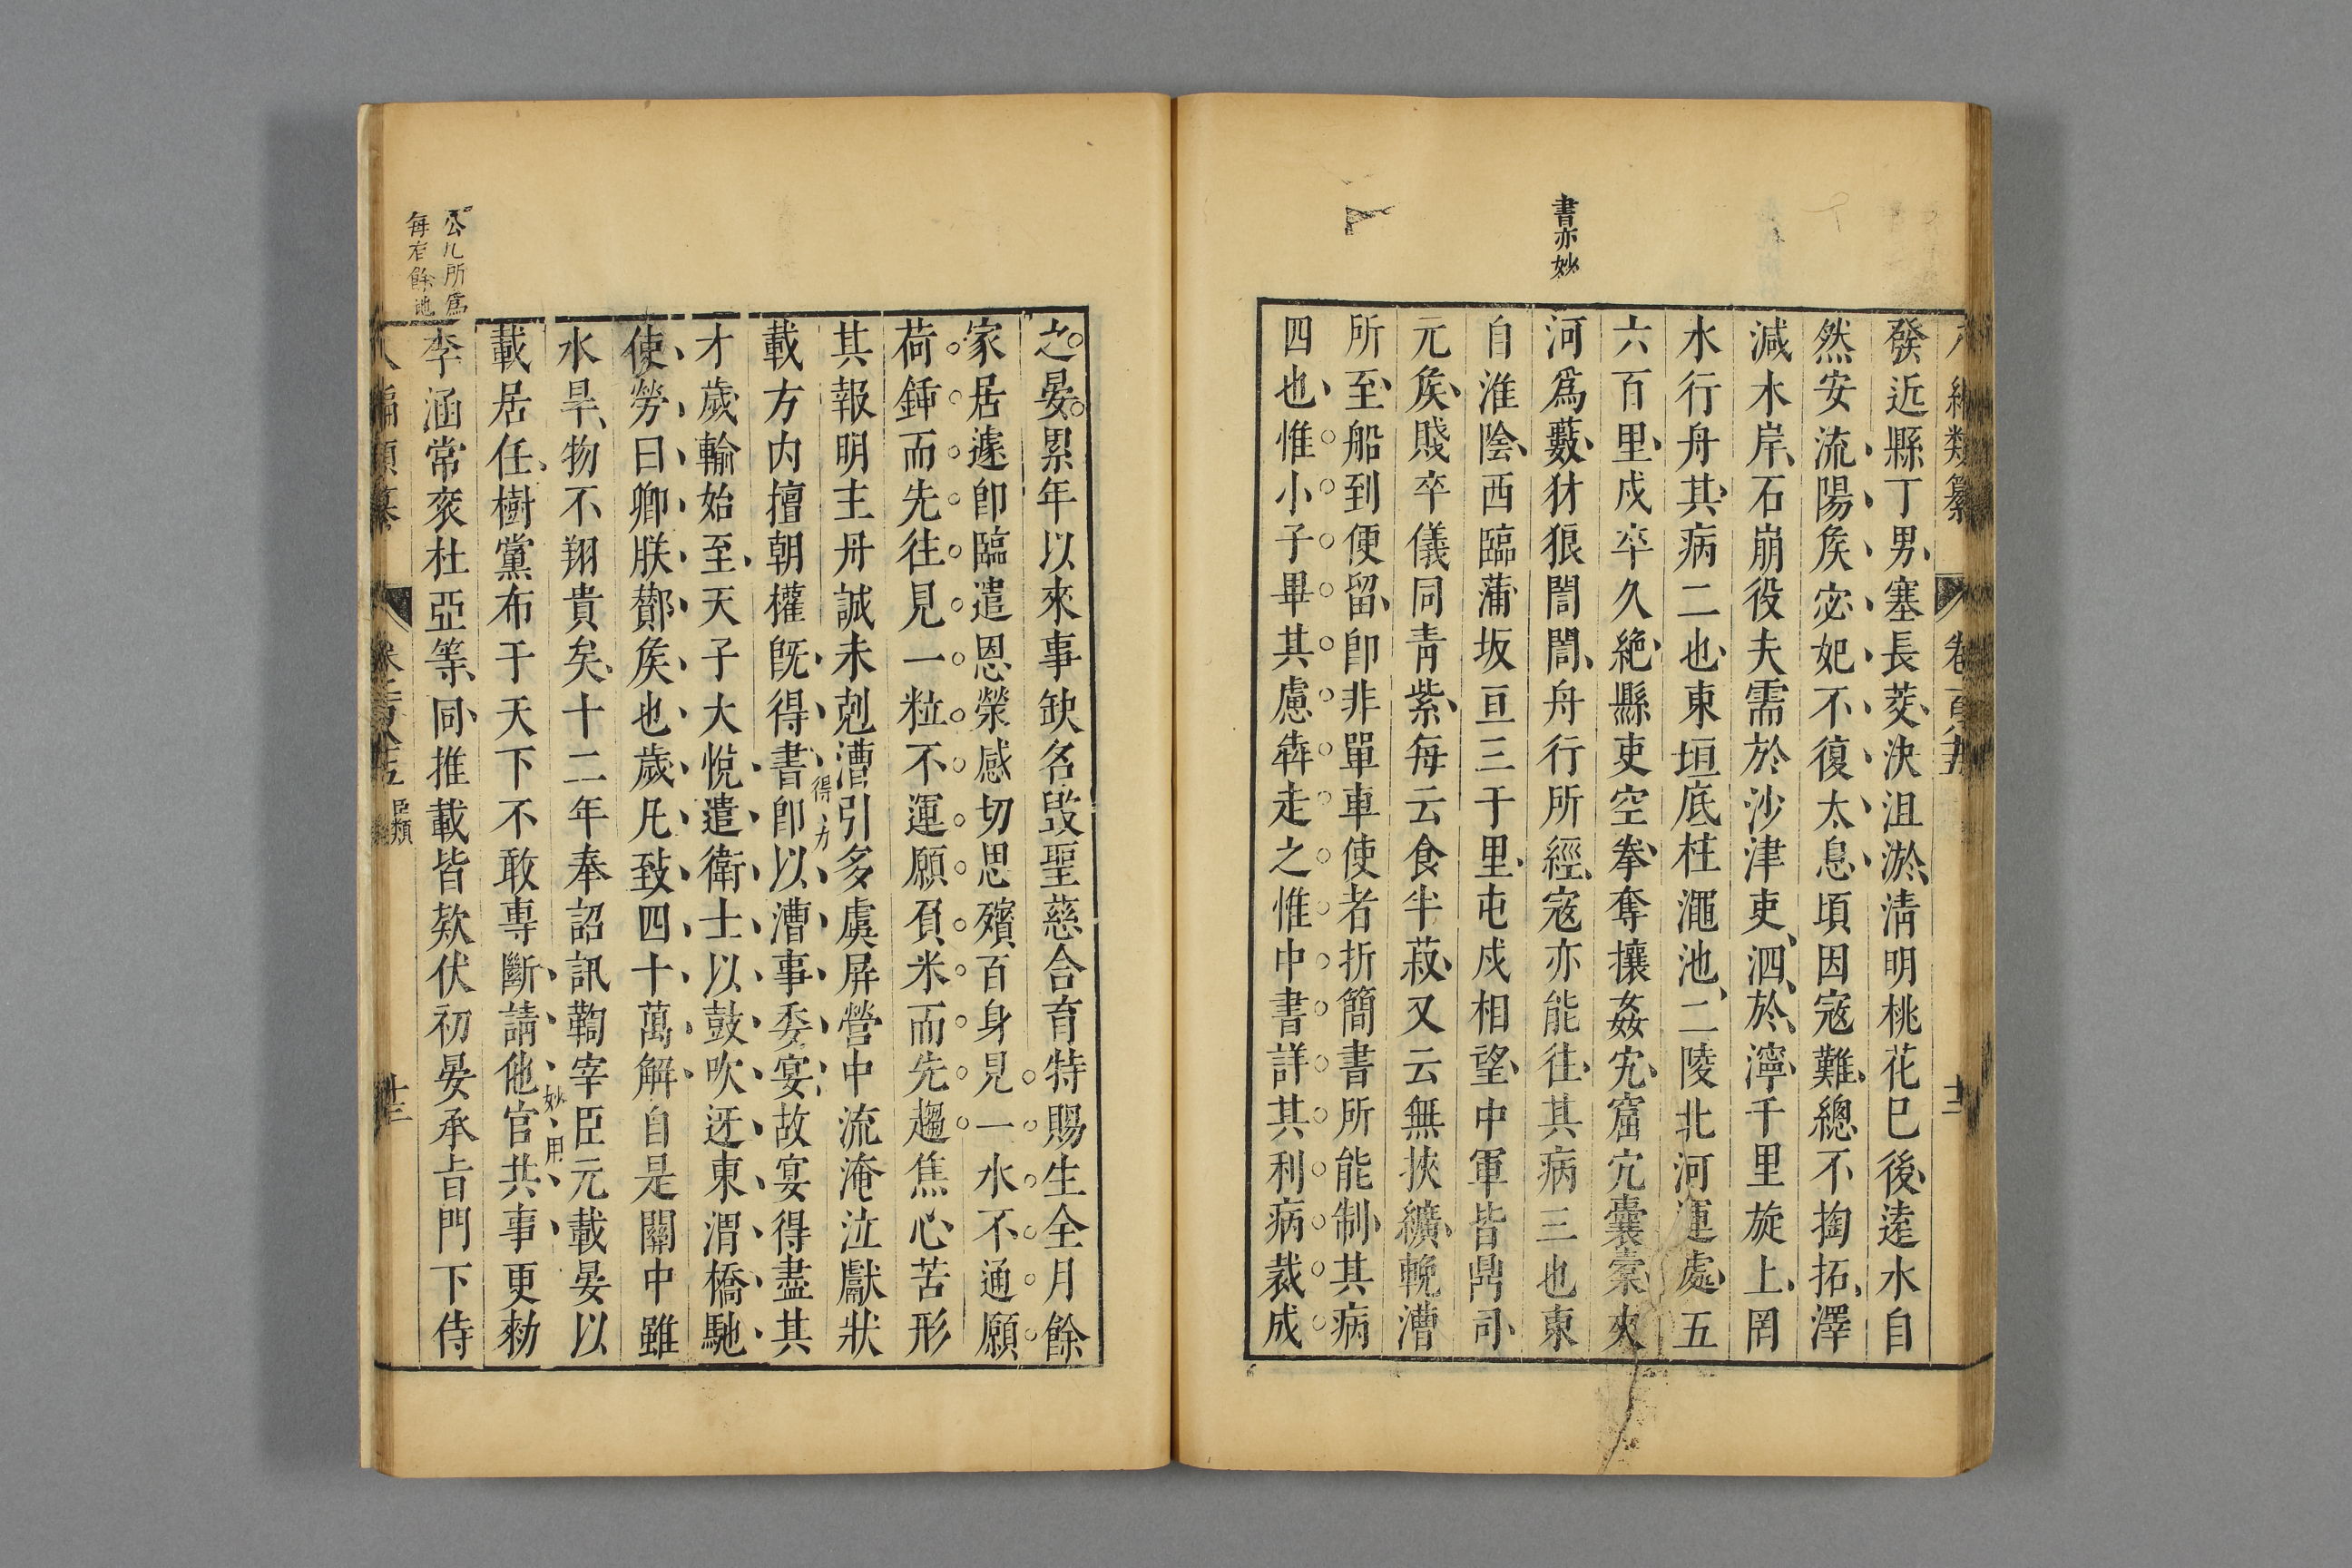 書亦妙
發近縣丁男塞長茭決沮淤清明桃花已後逺水自
然安流陽矦宓妃不復太息頃因寇難總不掏拓澤
減水岸石崩役夫需於沙津吏泗於濘千里旋上罔
水行舟其病二也東垣底柱澠池二陵北河運處五
六百里戍卒久絶縣吏空拳奪攘姦宄窟穴囊橐夾
河爲藪犲狼誾誾舟行所經寇亦能往其病三也東
自淮陰西臨蒲坂亘三千里屯戍相望中軍皆鼎司
元矦賤卒儀同青紫每云食半菽又云無挾纊輓漕
所至船到便留卽非單車使者折簡書所能制其病
四也惟小子畢其慮犇走之惟中書詳其利病裁成
之晏累年以來事缺名毁聖慈含育特賜生全月餘
家居遽卽臨遣恩榮感切思殯百身見一水不通願
荷鍤而先往見一粒不運願負米而先趨焦心苦形
其報明主丹誠未剋漕引多虞屏營中流淹泣獻狀
載方内擅朝權旣得書卽以漕事委宴故宴得盡其
得方
才歲輸始至天子大悅遣衛士以鼓吹迓東渭橋馳
使勞曰卿朕酇矦也歲凡致四十萬解自是關中雖
水旱物不翔貴矣十二年奉詔訊鞫宰臣元載晏以
載居任樹黨布于天下不敢專斷請他官共事更勑
妙用
公凡所爲
每有餘地
李涵常衮杜亞等同推載皆欵伏初晏承旨門下侍